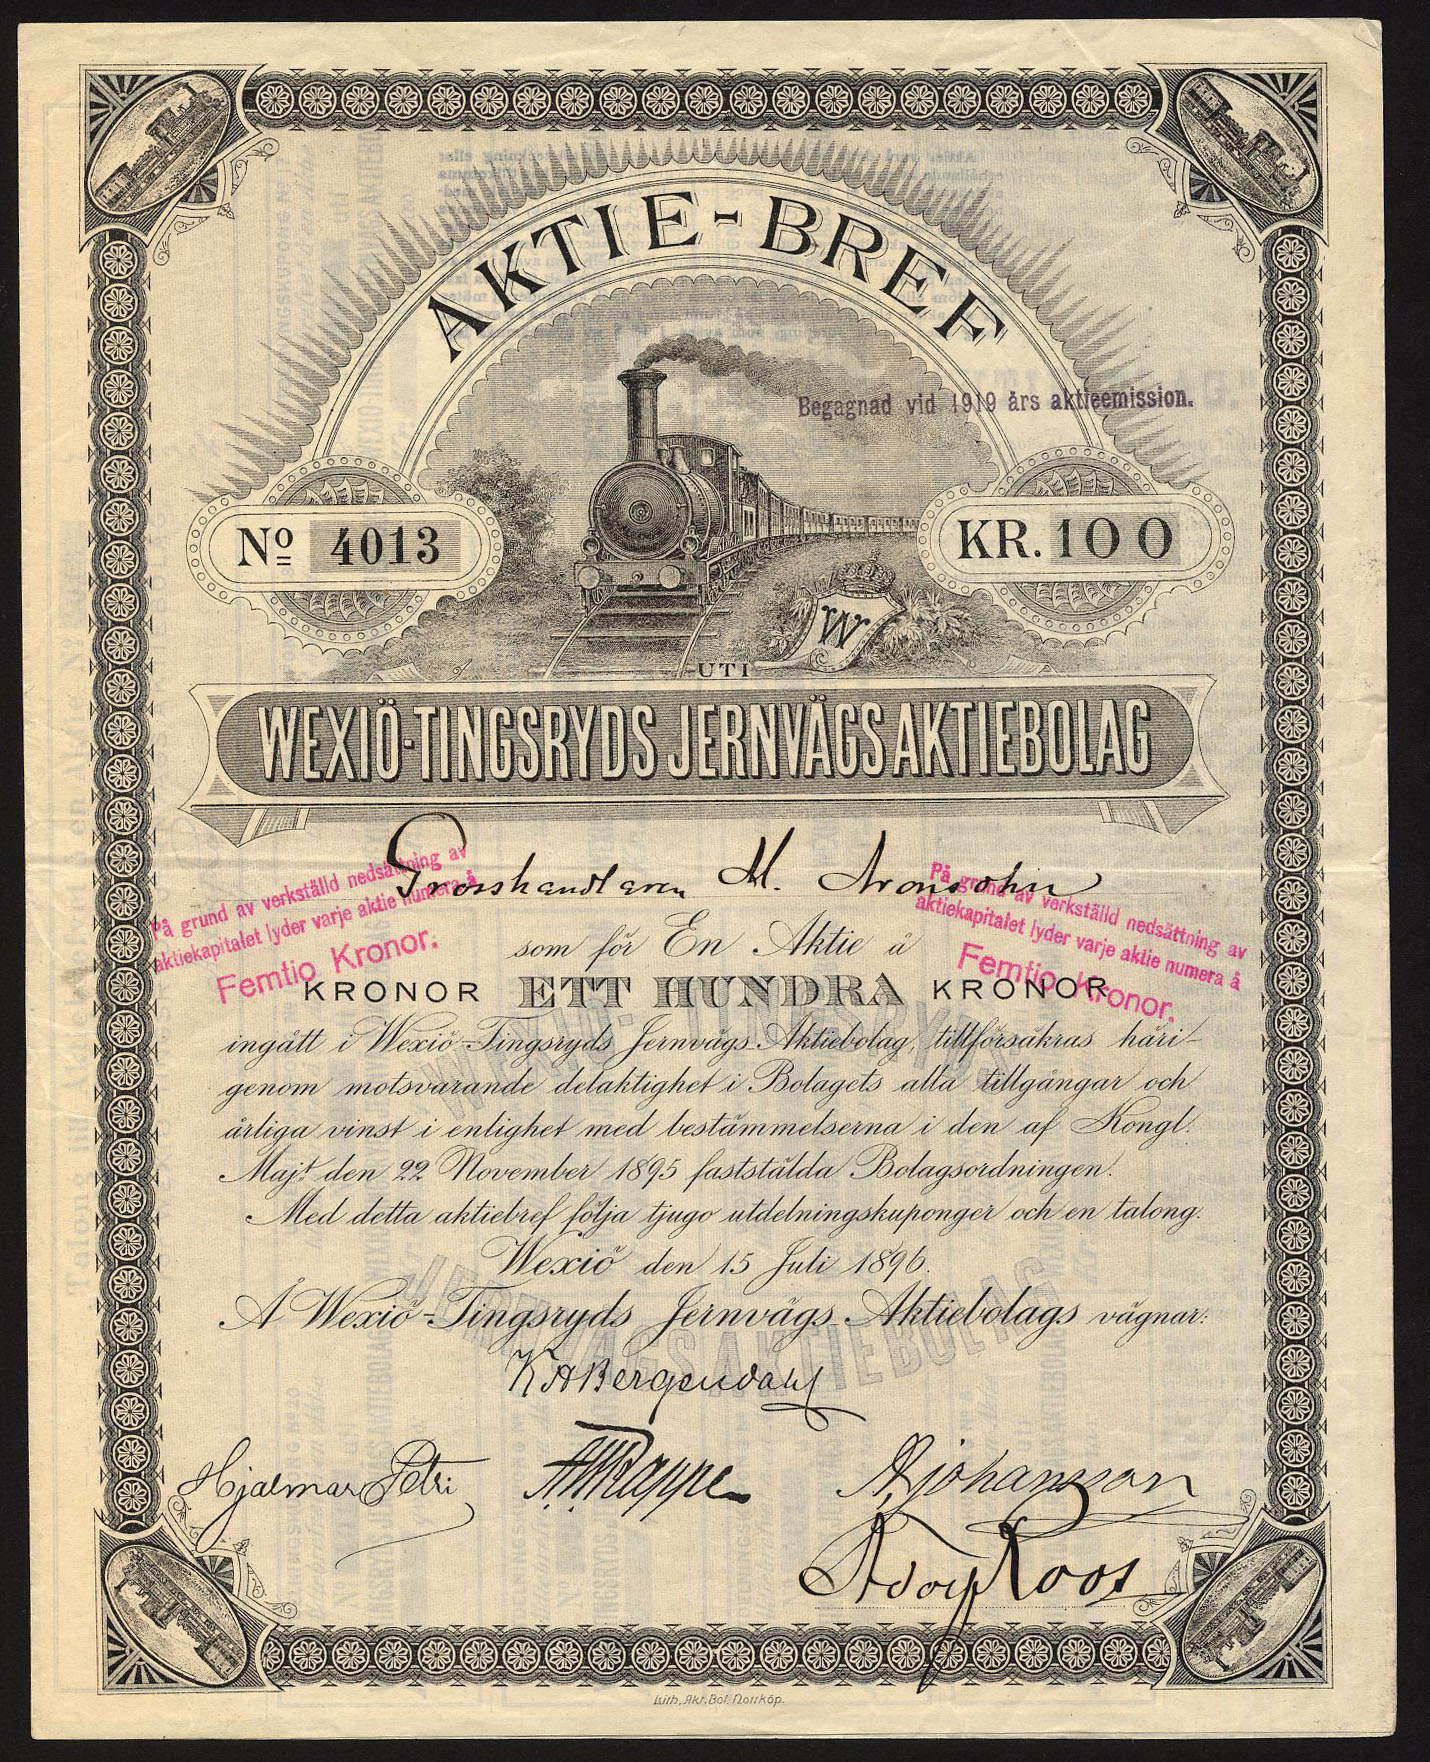 AKTIE-BREF
Begagnad vid 1919 års aktieemission.
No 4013
KR. 100
W
UTI
WEXIÖ-TINGSRYDS JERNVÄGSAKTIEBOLAG
Grosshandlaren M. Aronsohn
På grund av verkställd nedsättning av
aktiekapitalet lyder varje aktie numera å
Femtio Kronor.
På grund av verkställd nedsättning av
aktiekapitalet lyder varje aktie numera å
Femtio Kronor.
som för En Aktie å
KRONOR ETT HUNDRA KRONOR
ingått i Wexiö-Tingsryds Jernvägs Aktiebolag, tillförsäkras häri-
genom motsvarande delaktighet i Bolagets alla tillgångar och
årliga vinst i enlighet med bestämmelserna i den af Kongl:
Majt den 22 November 1895 fastställda Bolagsordningen.
Med detta aktiebref följa tjugo utdelningskuponger och en talong.
Wexiö den 15 Juli 1896.
Å Wexiö-Tingsryds Jernvägs Aktiebolags vägnar:
WEXIÖ-TINGSRYDS
JERNVÄGSAKTIEBOLAG
K A Bergendahl
Hjalmar Petri
Rappe
Johansson
Adolf Roos
Lith. Akt. Bol. Norrköp.